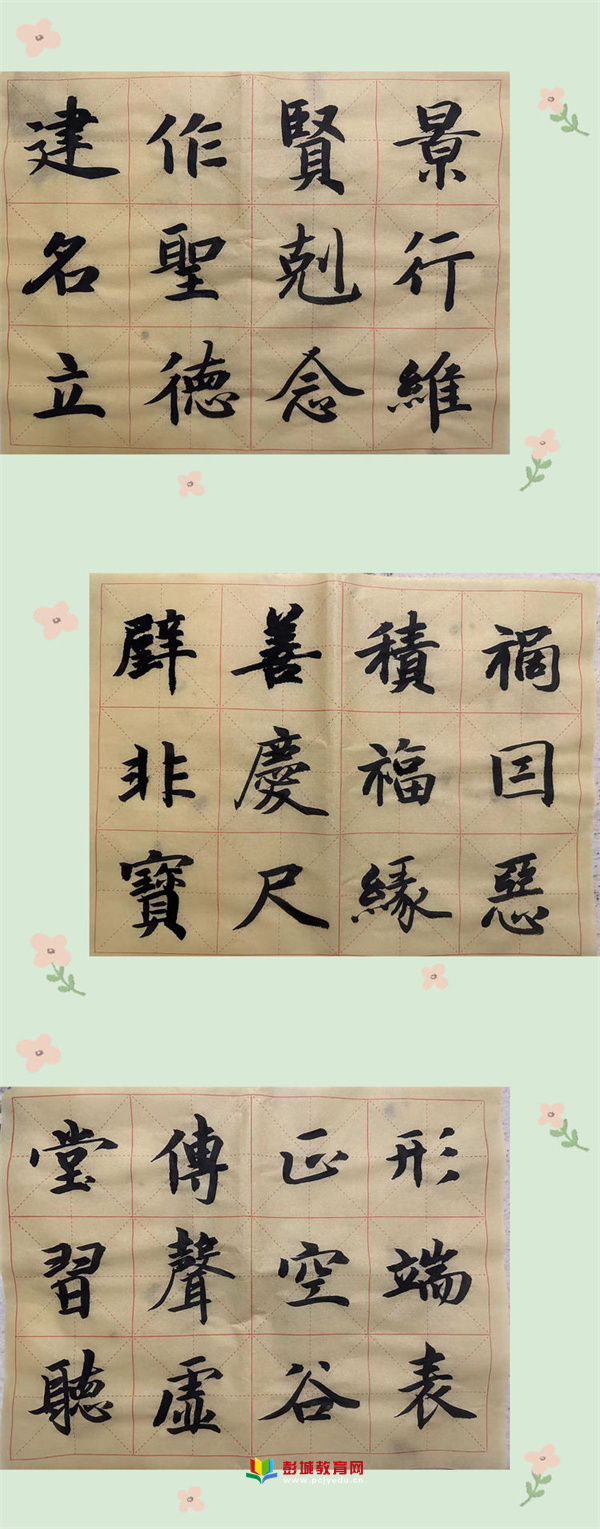 景行維
賢剋念
作聖德
建名立
禍囙惡
積福緣
善慶尺
璧非寶
形端表
正空谷
傳聲虛
堂習聽
彭城教育网
www.pcjyedu.cn